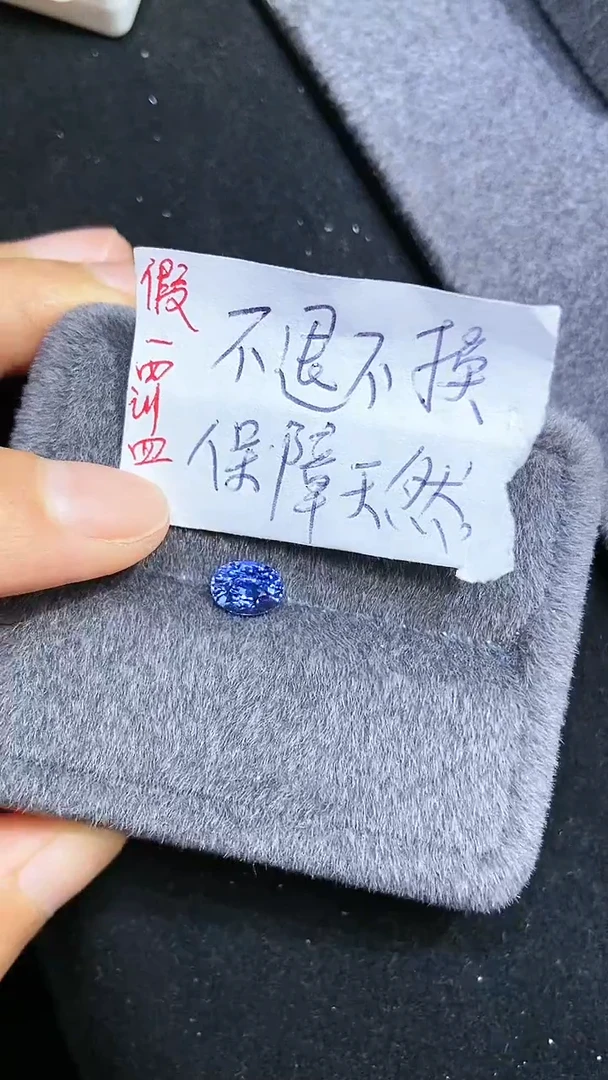 假一罚四
不退不换
保障天然